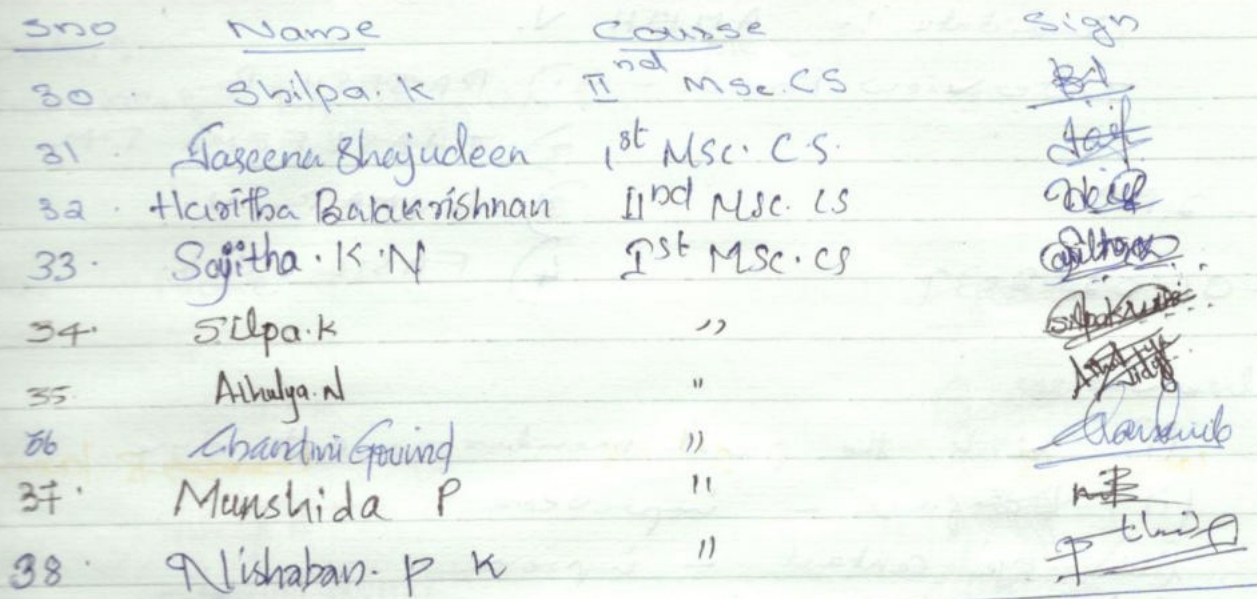 Sno Name Course Sign
30. Shilpa. K IInd MSc. CS
31. Jaseena Shajudeen 1st MSc. C.S.
32. Haritha Balakrishnan IInd MSc. CS
33. Sajitha. K. N Ist MSc. CS
34. Silpa. K "
35. Athulya. N "
36 Chandni Govind "
37. Munshida P "
38. Nishaban. P K "